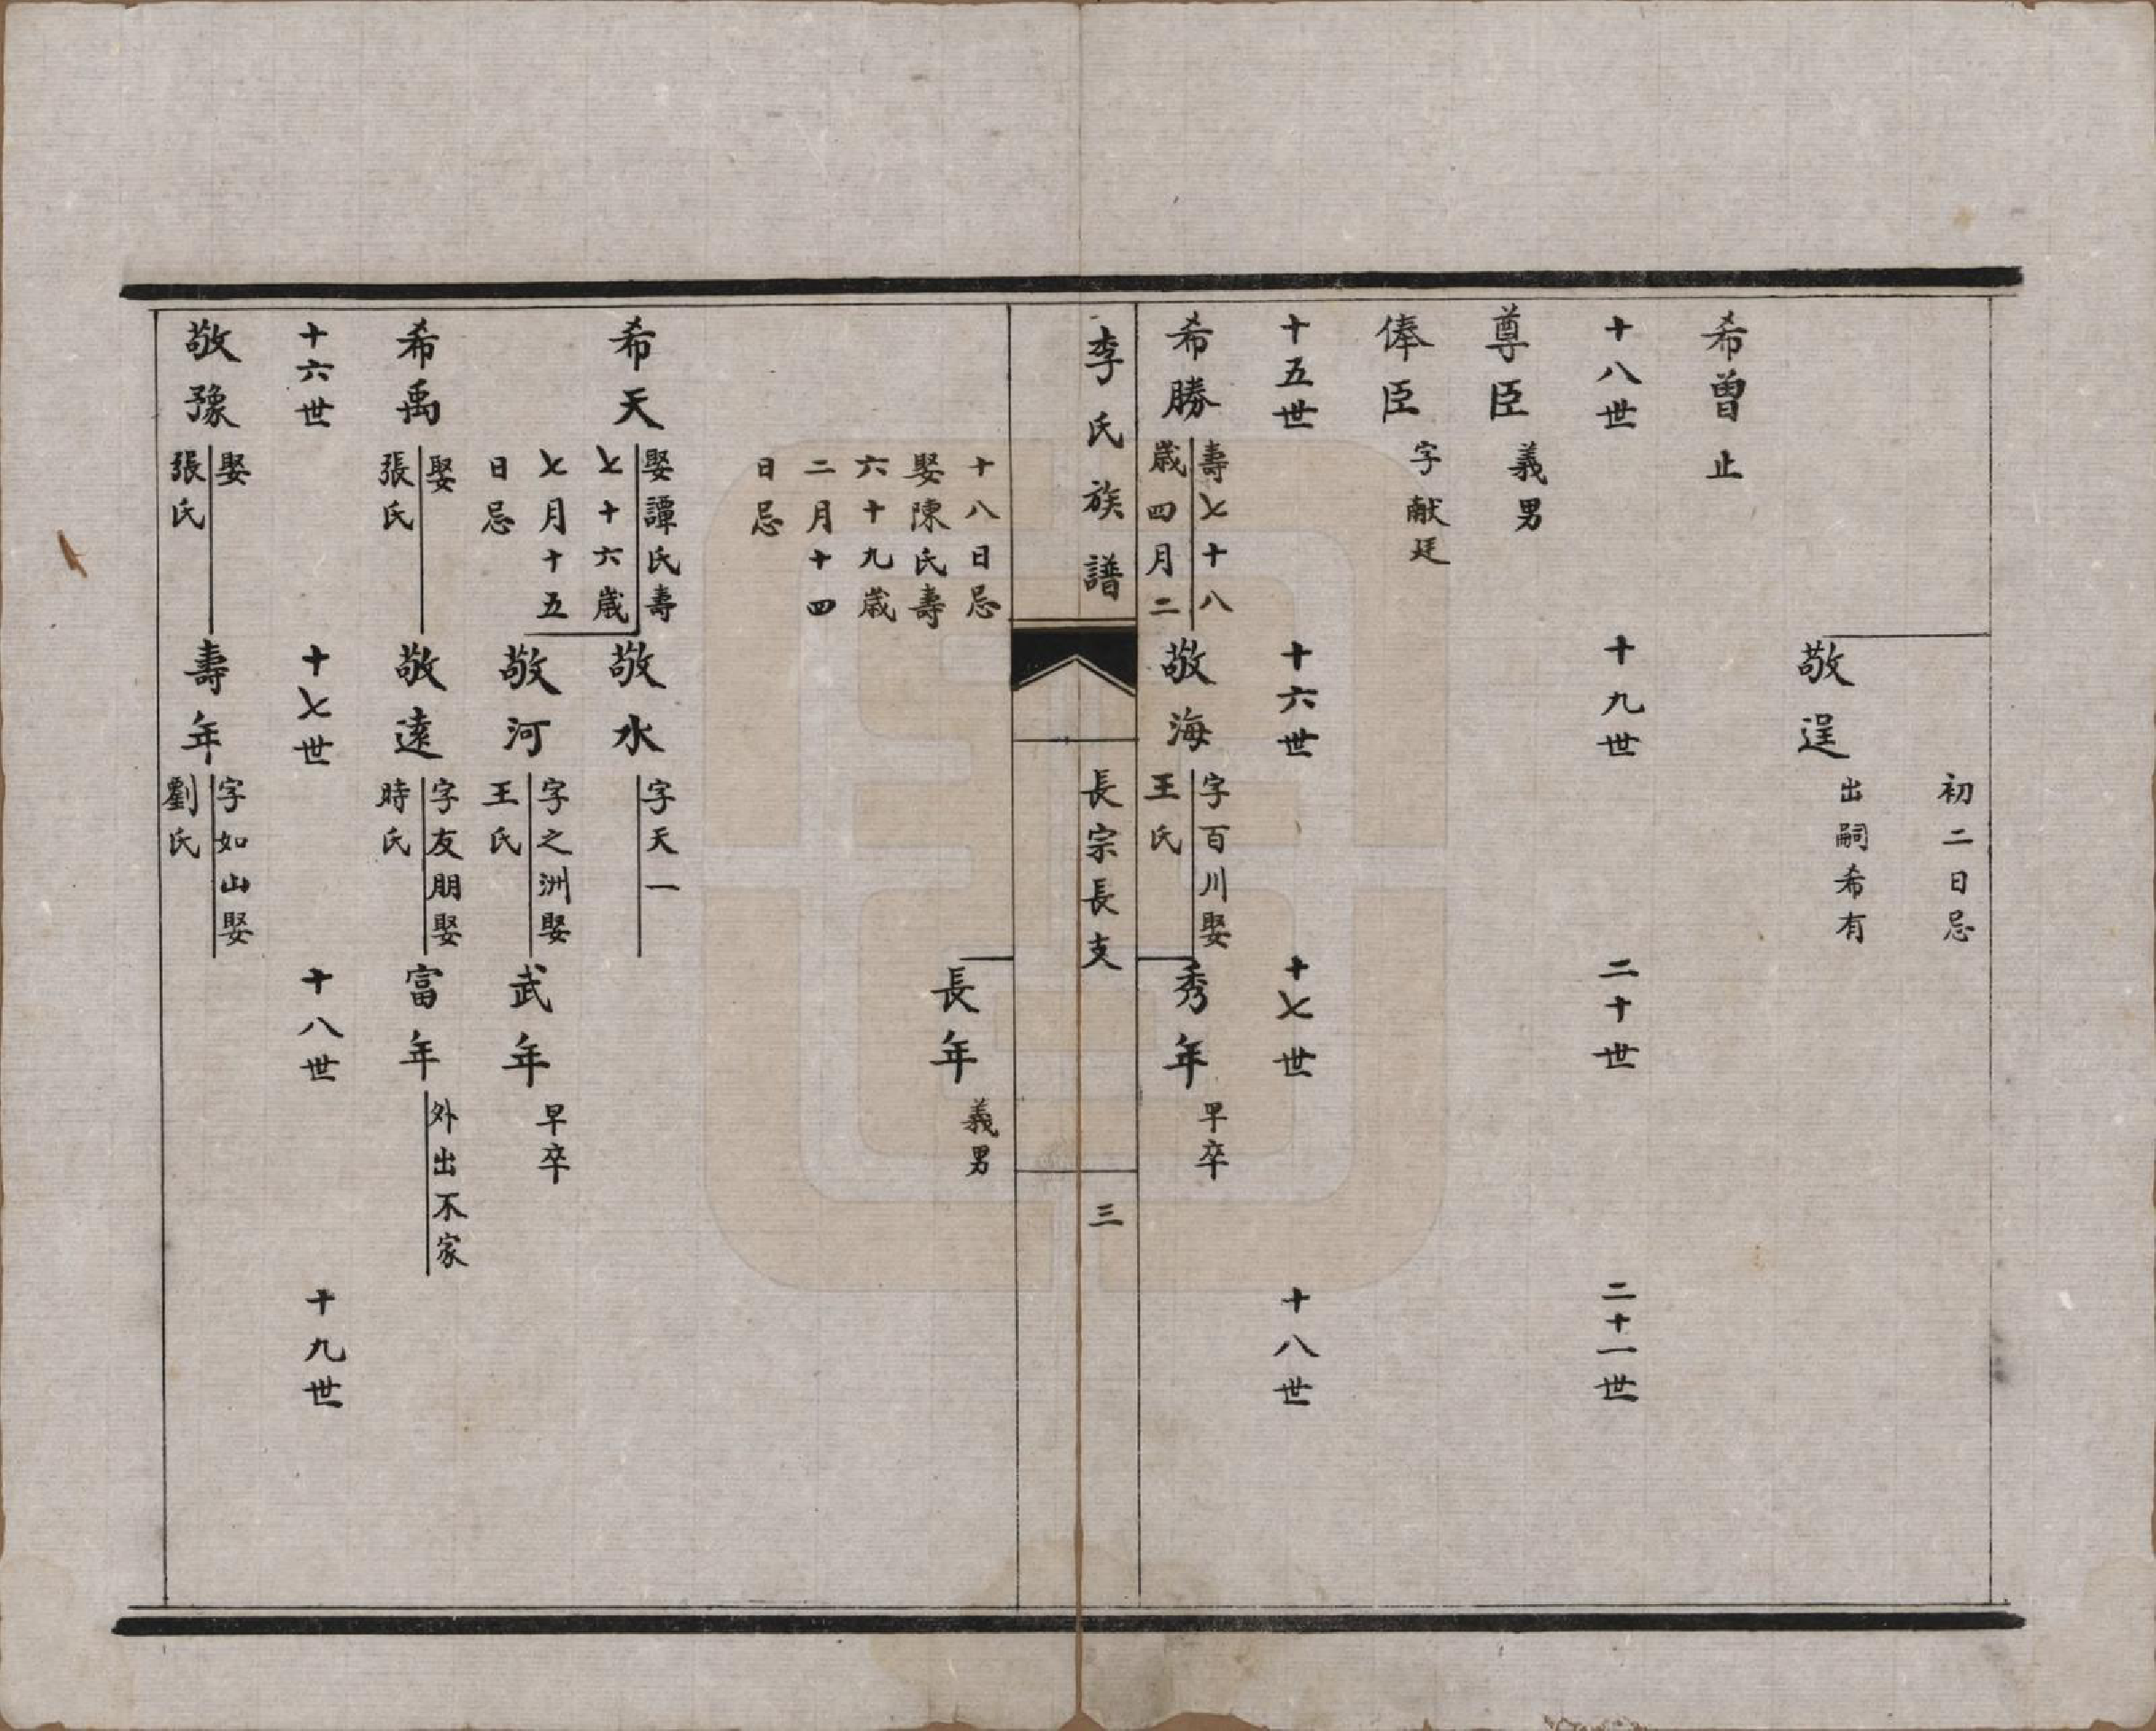 初二日忌
敬逞
出嗣希有
希曾
止
十八世
十九世
二十世
二十一世
尊臣
義男
俸臣
字献廷
十五世
十六世
十七世
十八世
希勝
壽七十八
歲四月二
敬海
字百川娶
王氏
秀年
早卒
李氏族譜
長宗長支
三
十八日忌
娶陳氏壽
六十九歲
二月十四
日忌
長年
義男
希天
娶譚氏壽
七十六歲
七月十五
日忌
敬水
字天一
敬河
字之洲娶
王氏
武年
早卒
希禹
娶
張氏
敬遠
字友朋娶
時氏
富年
外出不家
十六世
十七世
十八世
十九世
敬豫
娶
張氏
壽年
字如山娶
劉氏